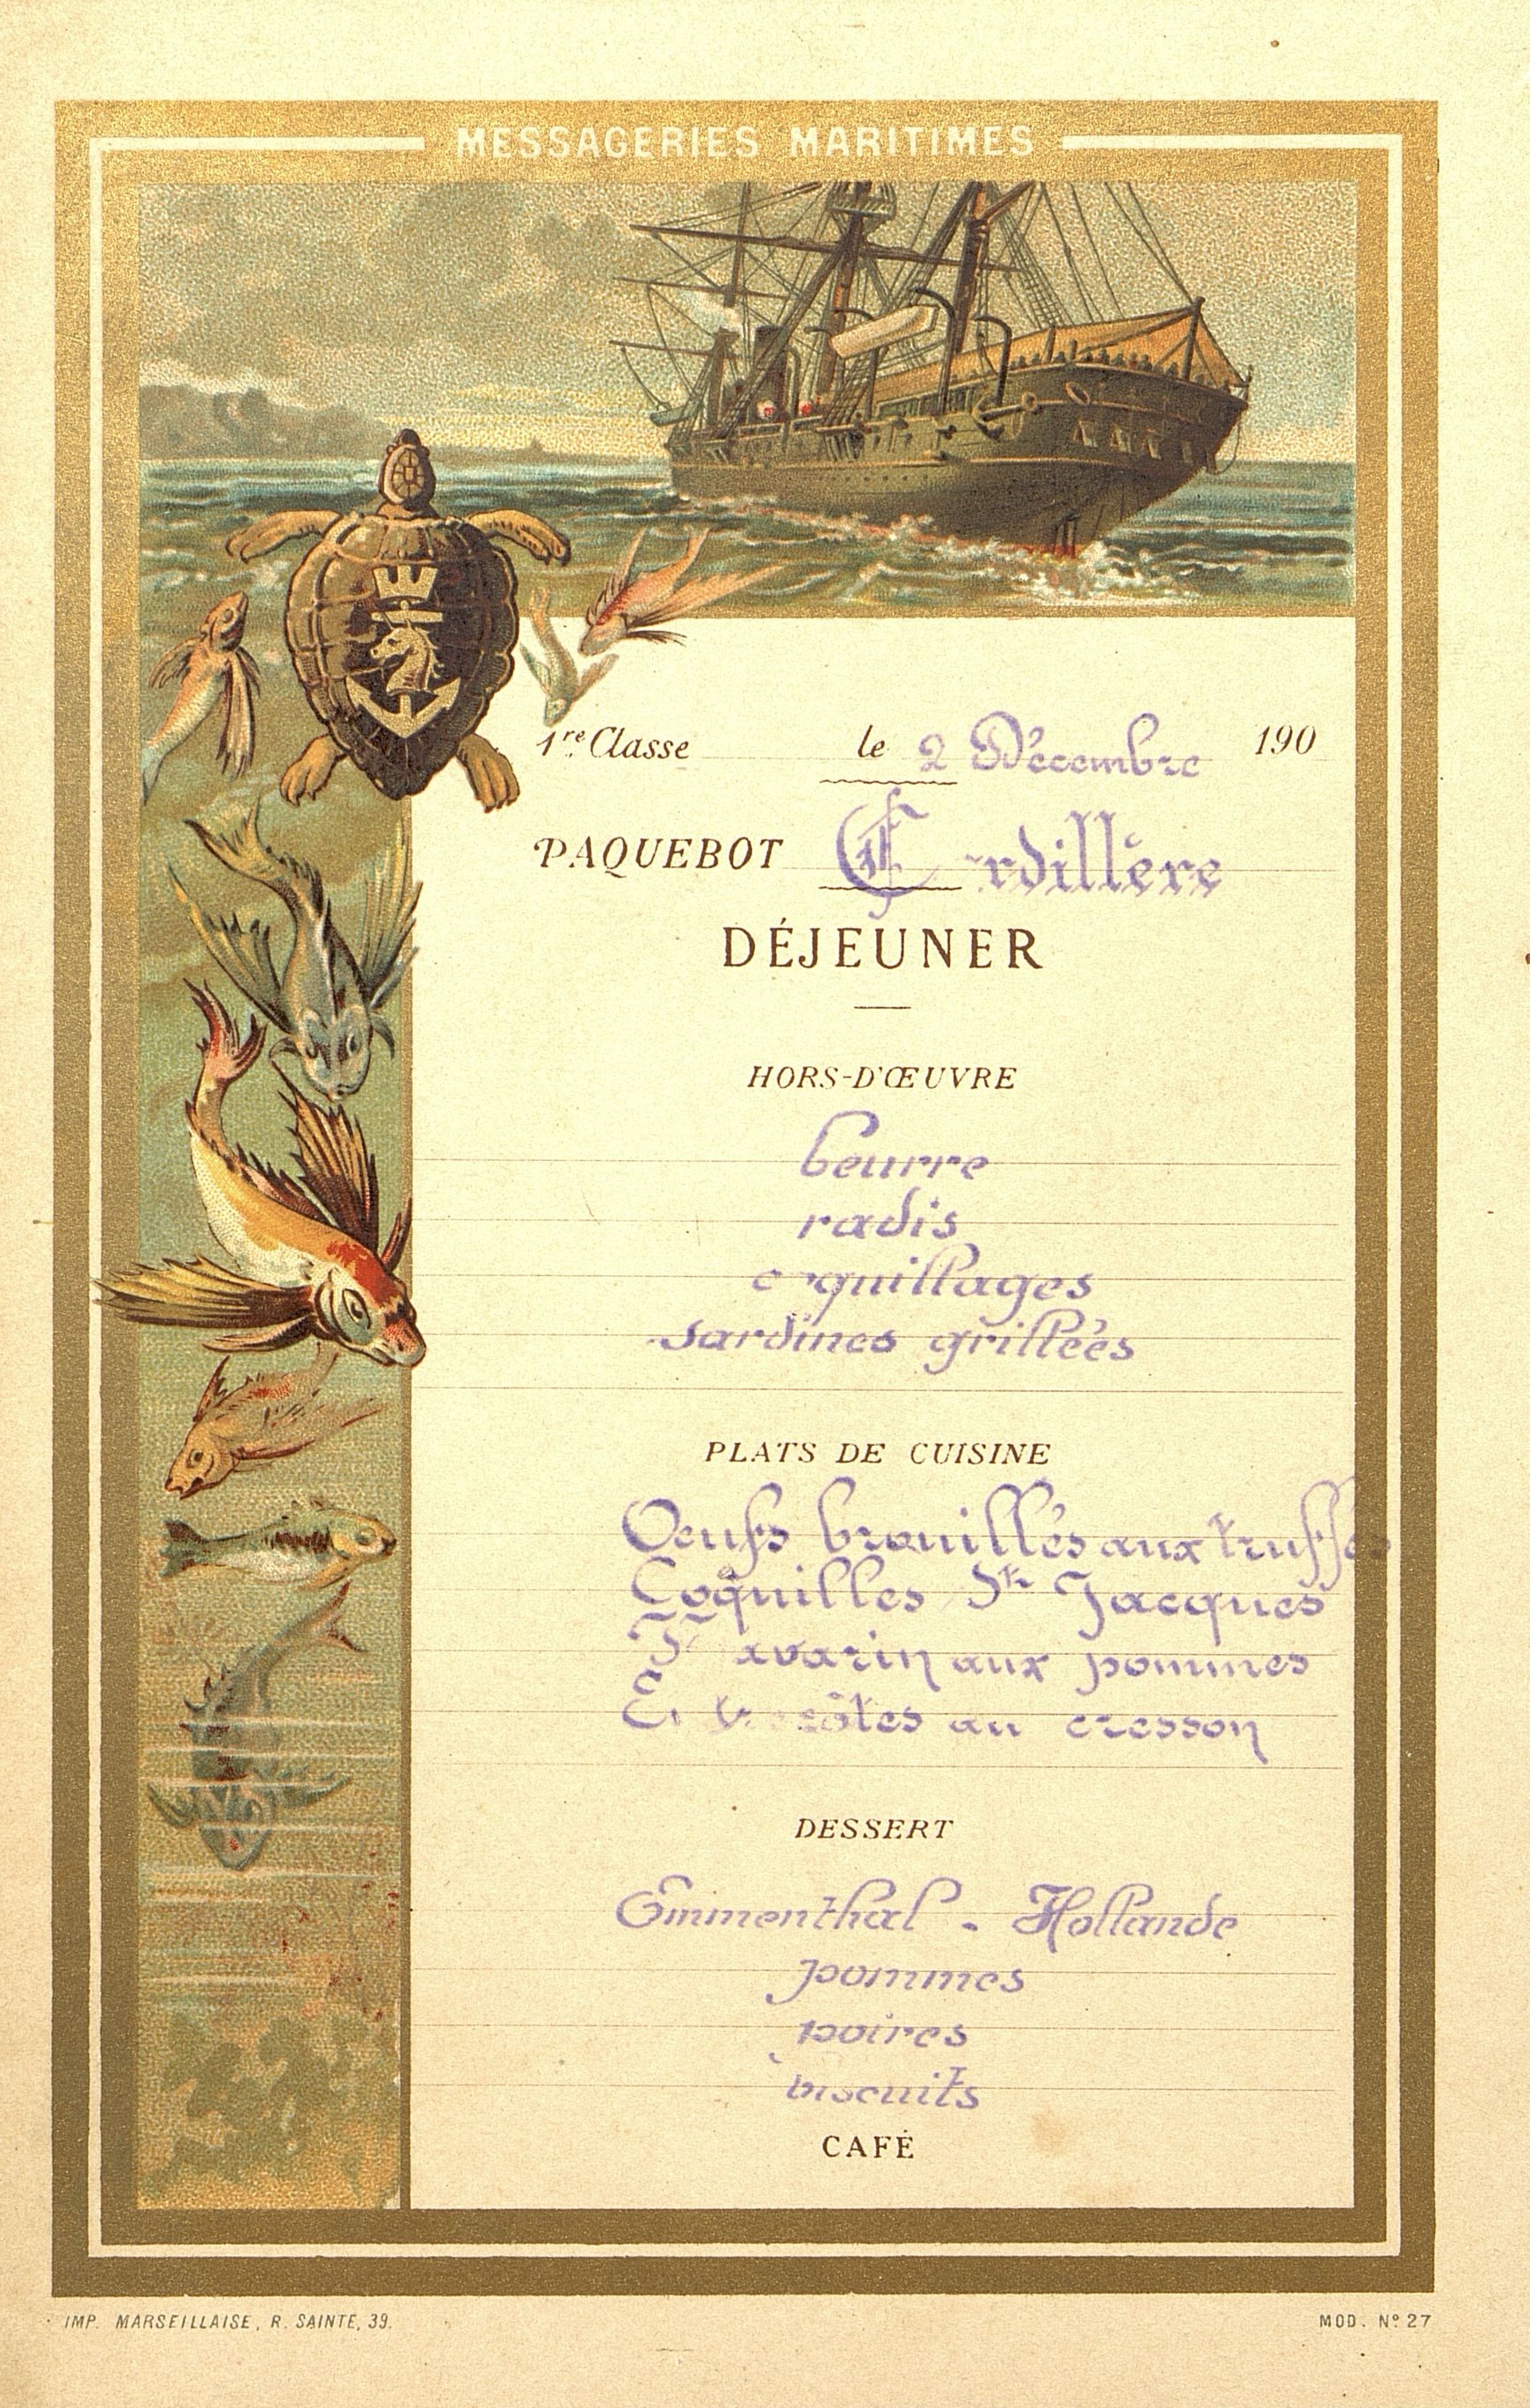 MESSAGERIES MARITIMES
1re Classe le 2 Décembre 190
PAQUEBOT Cordillère
DÉJEUNER
HORS-D'ŒUVRE
beurre
radis
coquillages
sardines grillées
PLATS DE CUISINE
Oeufs brouillés aux truffes
Coquilles St Jacques
Navarin aux pommes
Entrecôtes au cresson
DESSERT
Emmenthal - Hollande
pommes
poires
biscuits
CAFÉ
IMP. MARSEILLAISE, R. SAINTE, 39.
MOD. Nº 27